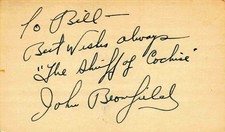 To Bill —
Best Wishes always
"The Sheriff of Cochise"
John Bromfield